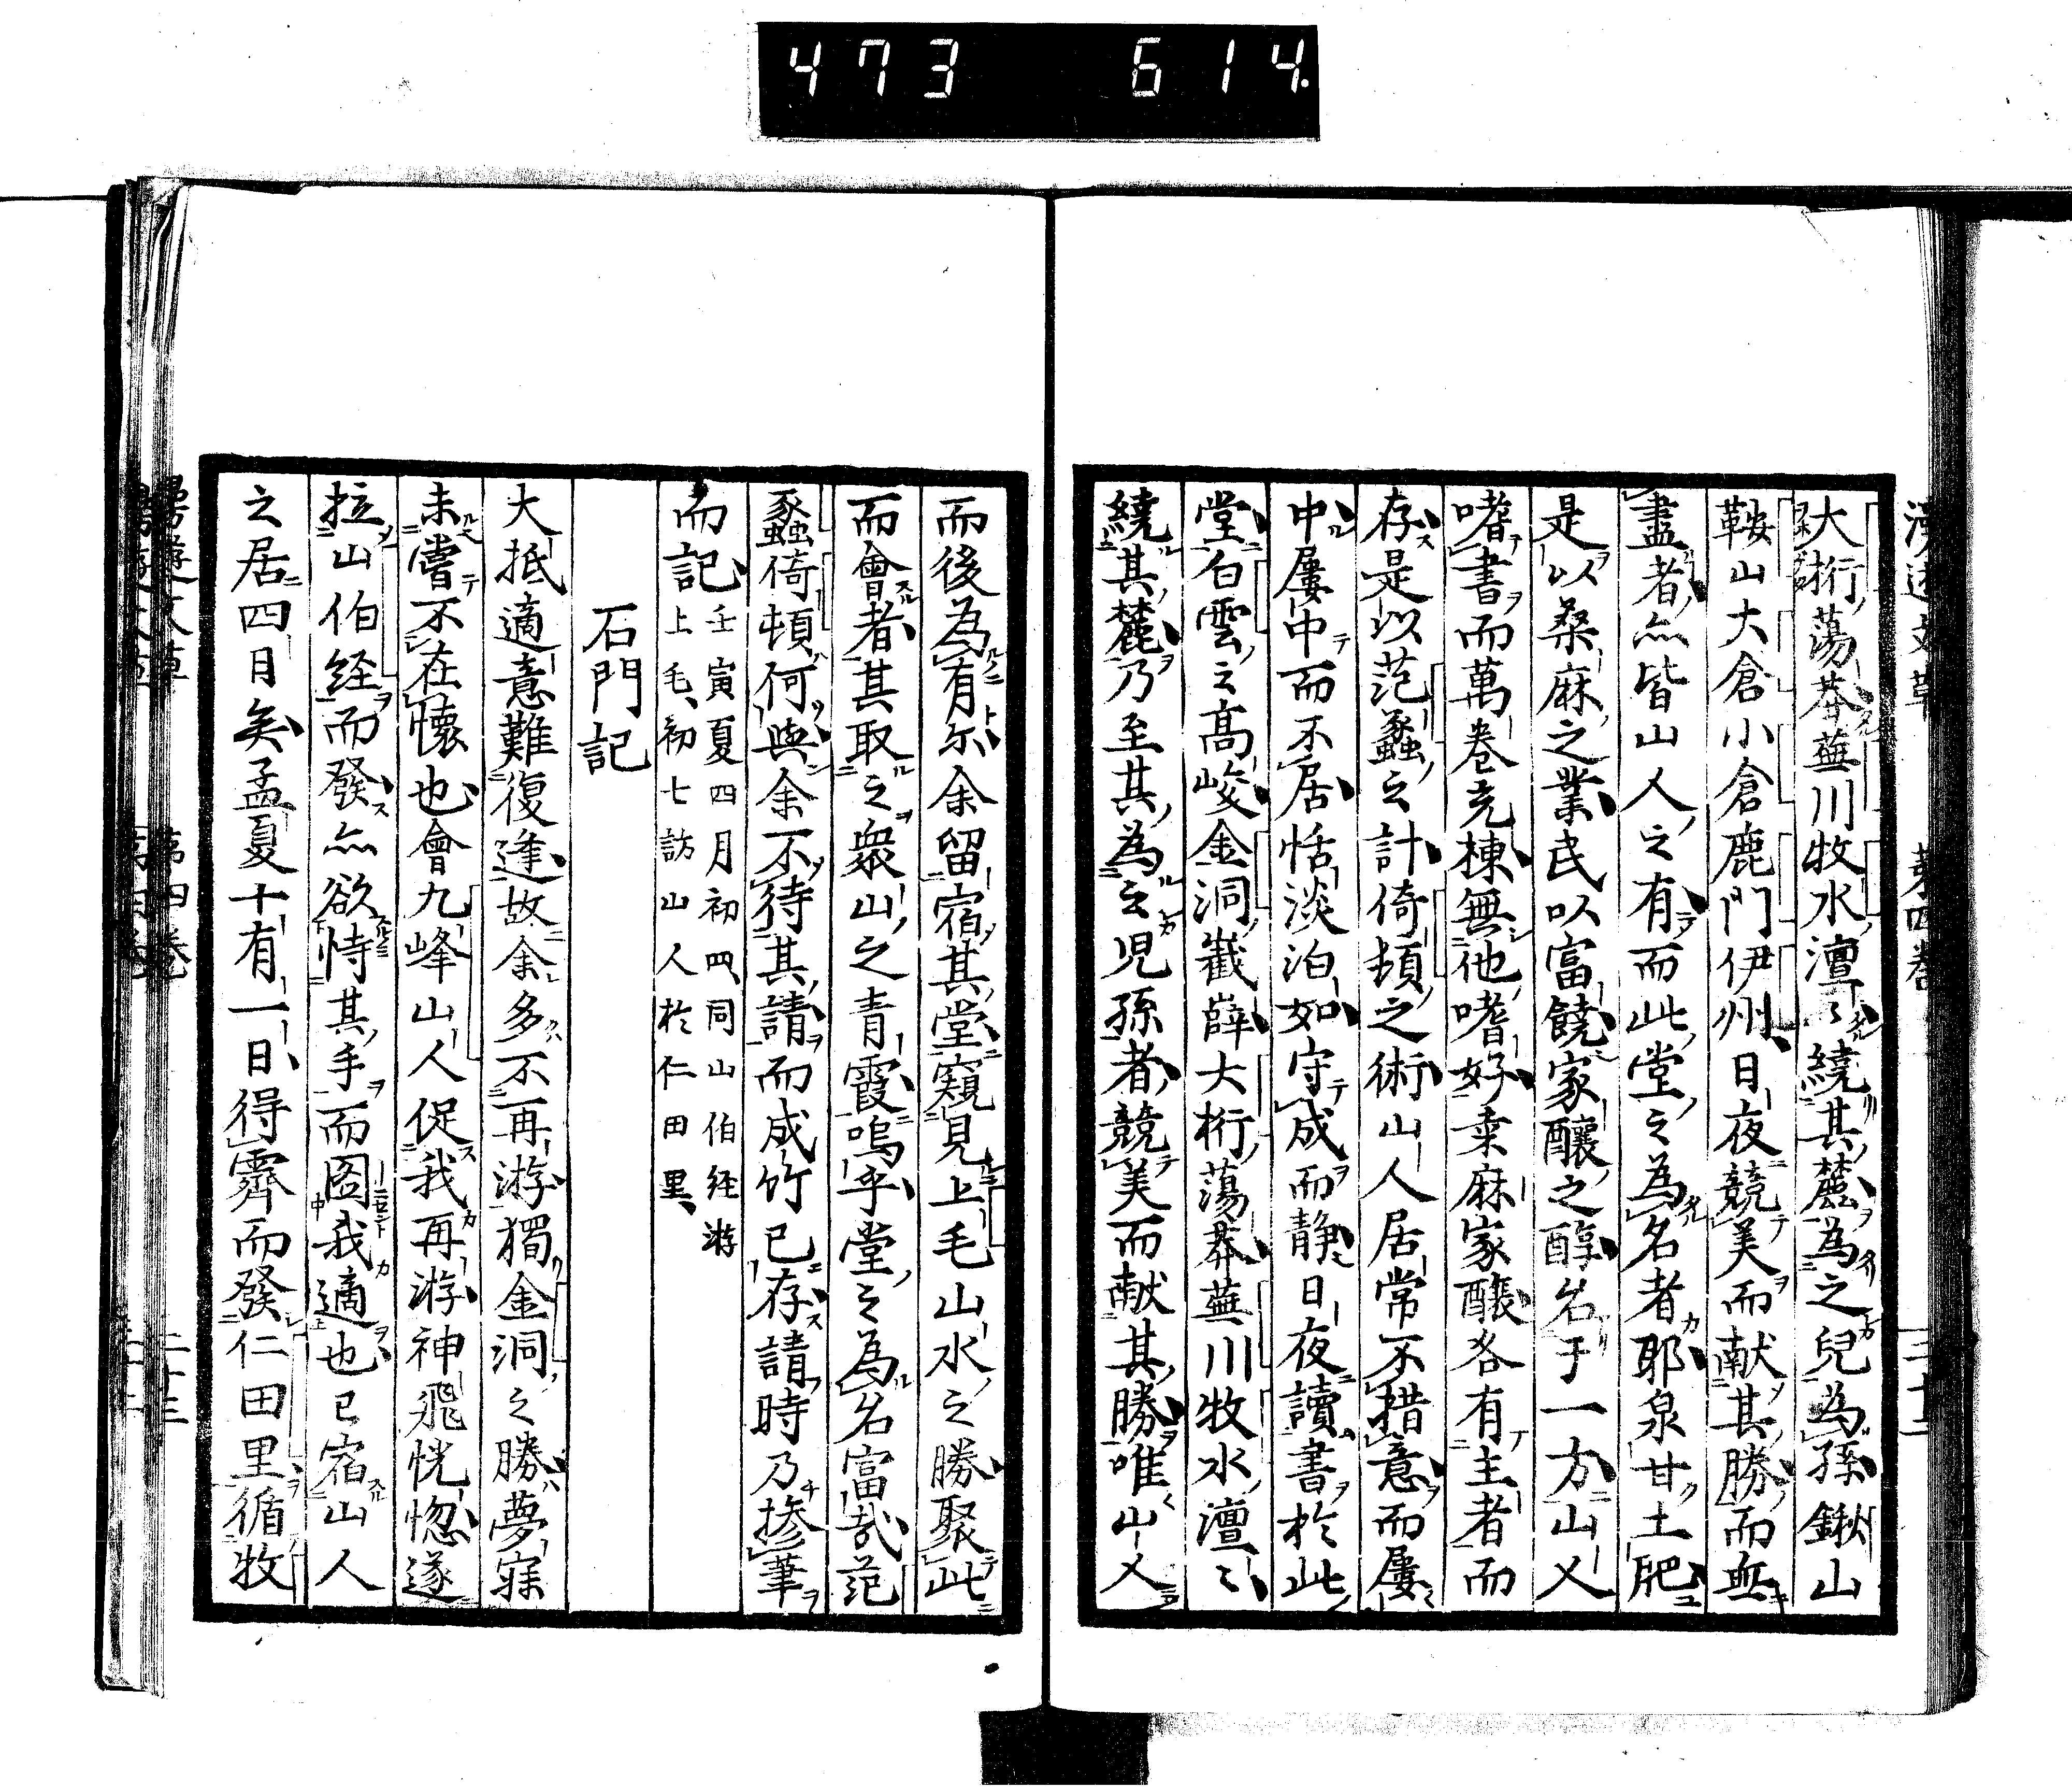 473 614.
大桁蕩莽蕪川牧水澶〻繞其麓為之兒為孫鍬山
鞍山大倉小倉鹿門伊州日夜競美而献其勝而無
盡者亦皆山人之有而此堂之為名者耶泉甘土肥
是以桑麻之業民以富饒家釀之醇名于一方山人
嗜書而萬卷充棟無他嗜好桒麻家釀各有主者而
存是以范蠡之計倚頓之術山人居常不措意而屢
中屢中而不居恬淡泊如守成而静日夜讀書於此
堂白雲之高峻金洞巀嶭大桁蕩莽蕪川牧水澶〻
繞其麓乃至其為之児孫者競美而献其勝唯山人
而後為有尔余留宿其堂窺見上毛山水之勝聚此
而會者其取之衆山之青霞嗚乎堂之為名富哉范
蠡倚頓何與余不待其請而成竹已存請時乃摻筆
而記
壬寅夏四月初四同山伯経游
上毛初七訪山人於仁田里
石門記
大抵適意難復逢故余多不再游獨金洞之勝夢寐
未嘗不在懷也會九峰山人促我再游神飛恍惚遂
拉山伯経而發亦欲恃其手而图我適也已宿山人
之居四月矣孟夏十有一日得霽而發仁田里循牧
第四巻